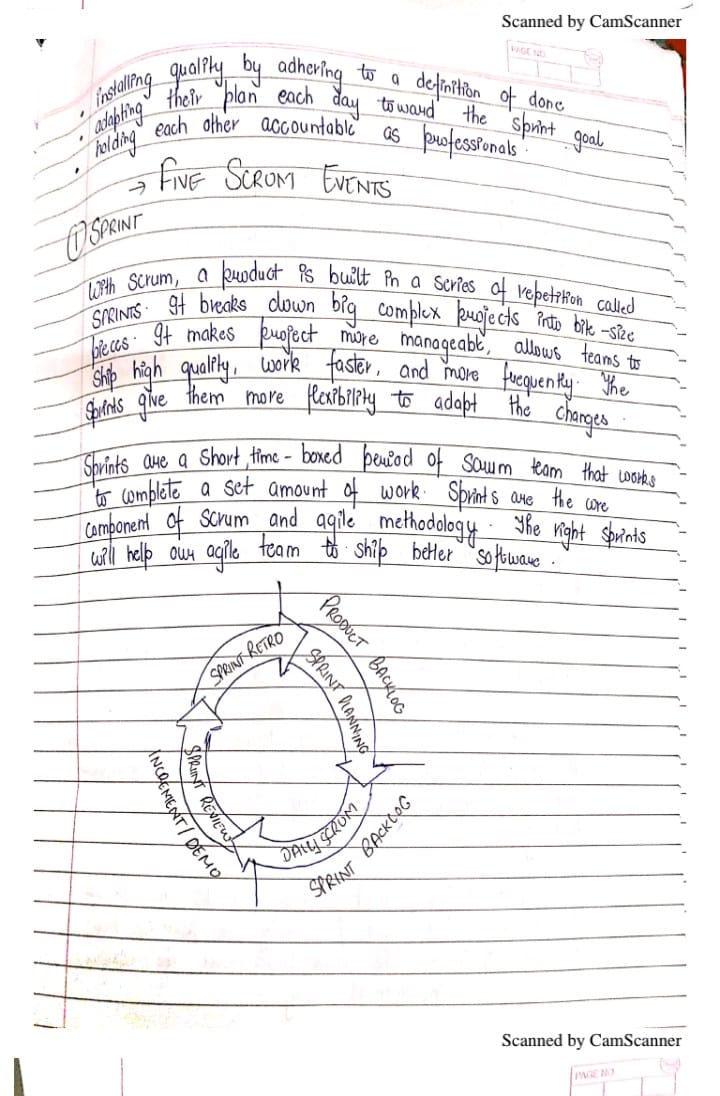 Scanned by CamScanner
PAGE NO.
• installing quality by adhering to a definition of done
• adapting their plan each day toward the sprint goal
• holding each other accountable as professionals.
→ FIVE SCRUM EVENTS
① SPRINT
With Scrum, a product is built in a series of repetition called
SPRINTS. It breaks down big complex projects into bite-size
pieces. It makes project more manageable, allows teams to
Ship high quality, work faster, and more frequently. The
Sprints give them more flexibility to adapt the changes.
Sprints are a Short, time-boxed period of Scrum team that works
to complete a set amount of work. Sprints are the core
Component of Scrum and agile methodology. The right sprints
will help our agile team to ship better software.
PRODUCT BACKLOG
SPRINT RETRO
SPRINT PLANNING
SPRINT REVIEW
INCREMENT/DEMO
DAILY SCRUM
SPRINT BACKLOG
Scanned by CamScanner
PAGE NO